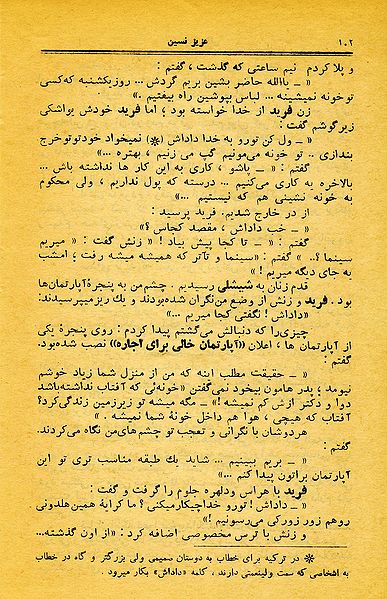 ۱۰۲ عزیز نسین
و پلا کردم نیم ساعتی که گذشت ، گفتم :
« – یاالله حاضر بشین بریم گردش ... روز یکشنبه که کسی
تو خونه نمیشینه ... لباس بپوشین راه بیفتیم .»
زن فرید از خدا خواسته بود ؛ اما فرید خودش یواشکی
زیر گوشم گفت :
« – ول کن تورو به خدا داداش (*) نمیخواد خودتو تو خرج
بندازی .. تو خونه می‌مونیم گپ می زنیم ، بهتره ...»
گفتم : « – پاشو ، کاری به این کار ها نداشته باش ...
بالاخره یه کاری می‌کنیم ... درسته که پول نداریم ، ولی محکوم
به خونه نشینی هم که نیستیم ...»
از در خارج شدیم. فرید پرسید :
« – خب داداش ، مقصد کجاس ؟»
گفتم : « – تا کجا پیش بیاد !» زنش گفت : « میریم
سینما ؟.. » گفتم : «سینما و تآتر که همیشه میشه رفت ؛ امشب
به جای دیگه میریم !»
قدم زنان به شیشلی رسیدیم . چشم من به پنجرهٔ آپارتمان‌ها
بود . فرید و زنش از وضع من نگران شده بودند و یك ریز میپرسیدند:
«داداش ! نگفتی کجا میریم ...»
چیزی را که دنبالش می‌گشتم پیدا کردم : روی پنجرهٔ یکی
از آپارتمان ها ، اعلان «(آپارتمان خالی برای اجاره)» نصب شده بود.
گفتم :
« – حقیقت مطلب اینه که من از منزل شما زیاد خوشم
نیومد ، پدر هامون بیخود نمی‌گفتن «خونه‌ئی که آفتاب نداشته باشد
دوا و دکتر ازش کم نمیشه !» – مگه میشه تو زیرزمین زندگی کرد؟
آفتاب که هیچی ، هوا هم داخل خونهٔ شما نمیشه . »
هردوشان با نگرانی و تعجب تو چشم‌های من نگاه می‌کردند.
گفتم :
« – بریم ببینیم ... شاید یك طبقه مناسب تری تو این
آپارتمان براتون پیدا کنم ...»
فرید با هراس و دلهره جلوم را گرفت و گفت :
« – داداش ! تورو خدا چیکار میکنی ؟ ما کرایهٔ همین هلدونی
رو هم زور زورکی می‌رسونیم !»
و زنش با ترس مخصوصی اضافه کرد : «از اون گذشته...
* در ترکیه برای خطاب به دوستان صمیمی ولی بزرگتر و گاه در خطاب
به اشخاصی که سمت ولینعمتی دارند ، کلمه «داداش» بکار میرود .